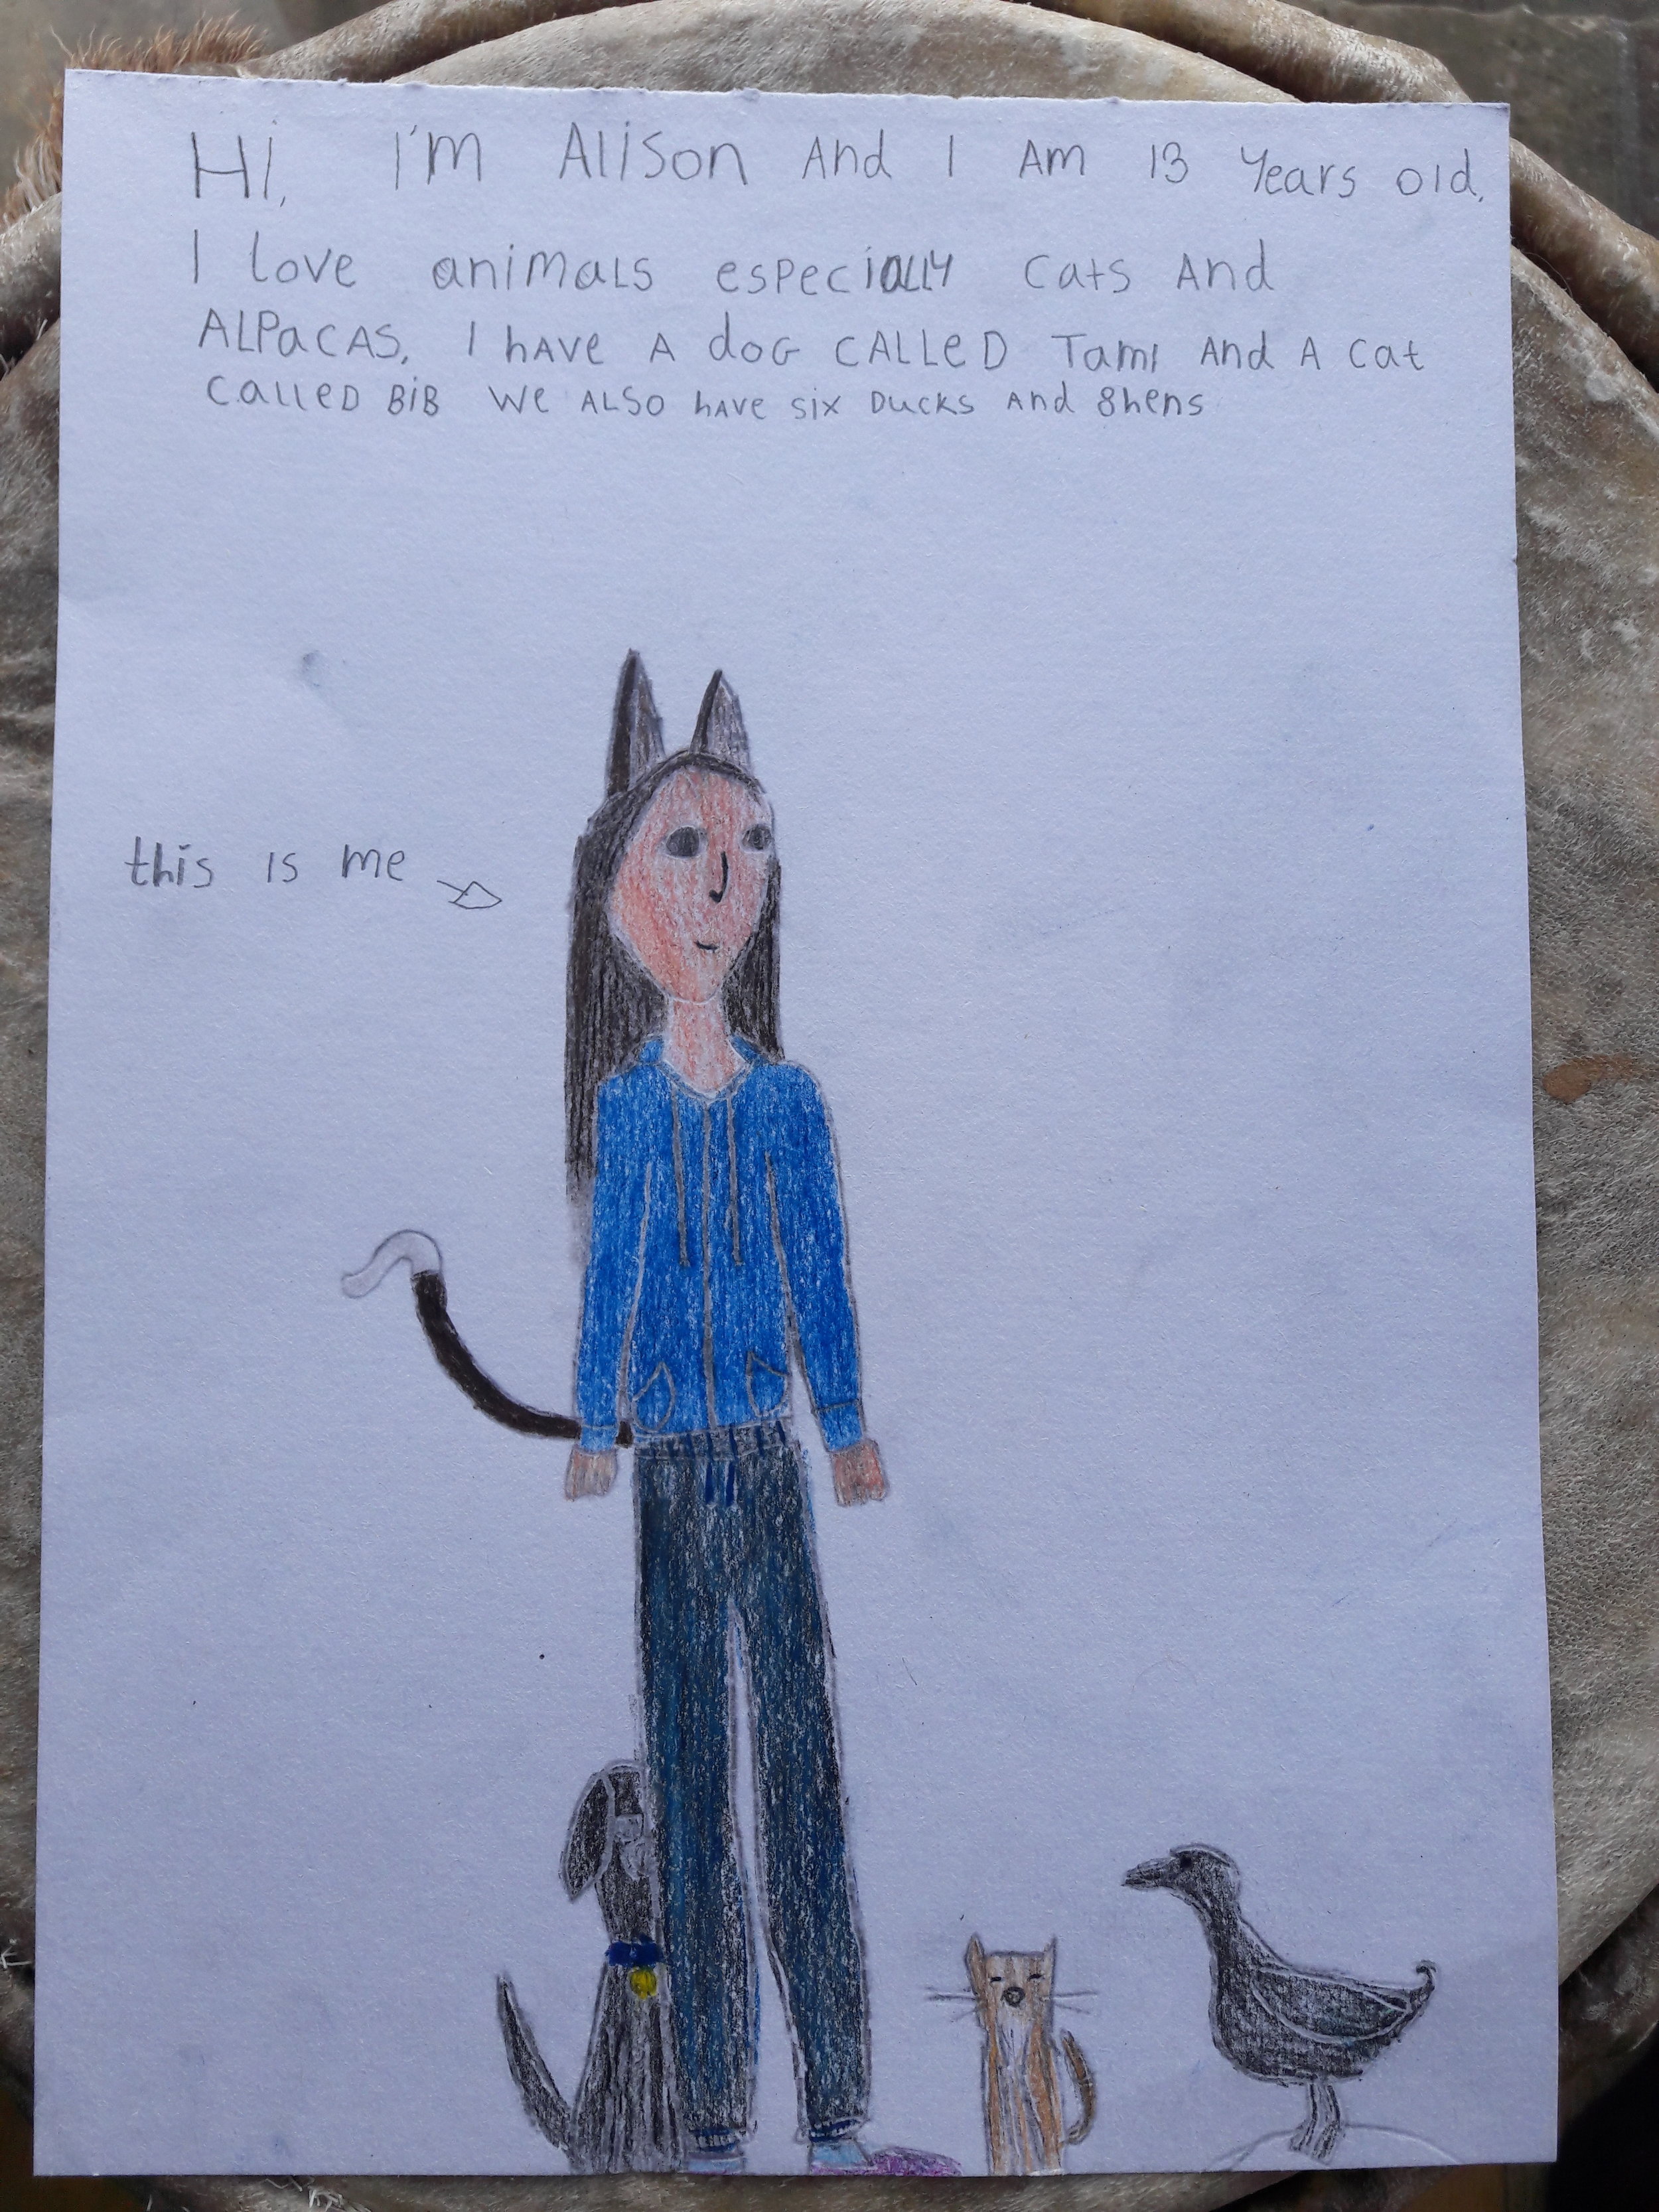 Hi, I'm Alison And I Am 13 years old.
I love animals especially cats And
ALPacAS. I hAve A doG CALLeD Tami And A cat
called BiB We ALSO hAve six Ducks And 8hens
this is me